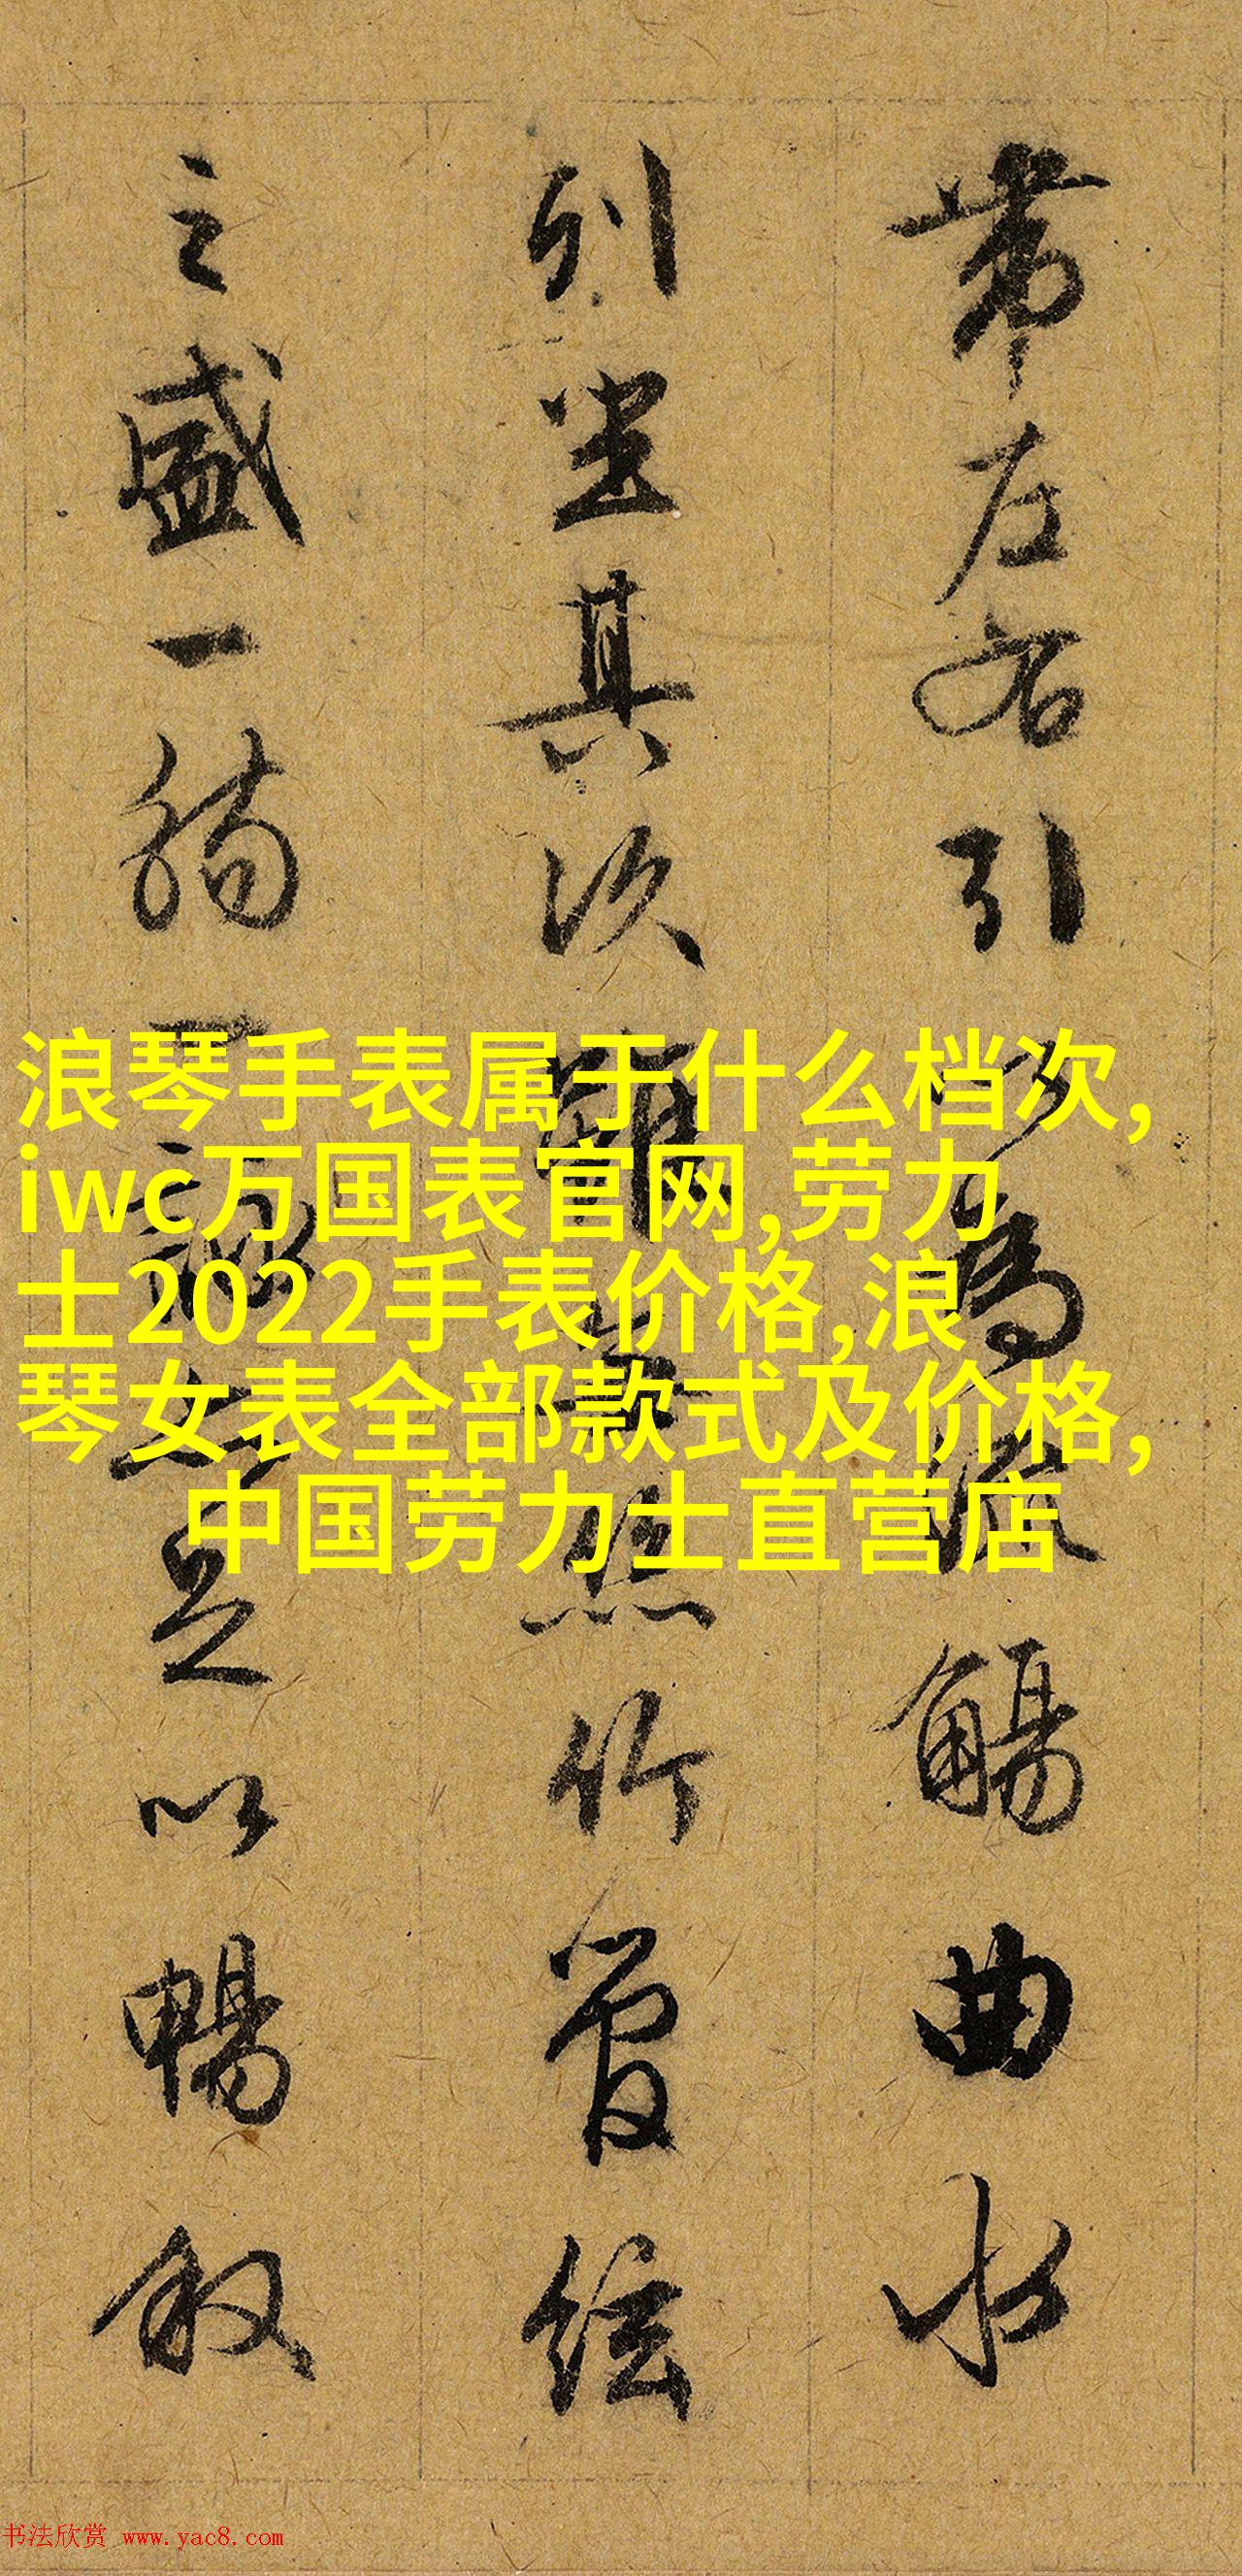 帶左右引以為流觴曲水
列坐其次雖無絲竹管絃
之盛一觴一詠亦足以暢敘
浪琴手表属于什么档次,
iwc万国表官网,劳力
士2022手表价格,浪
琴女表全部款式及价格,
中国劳力士直营店
书法欣赏 www.yac8.com